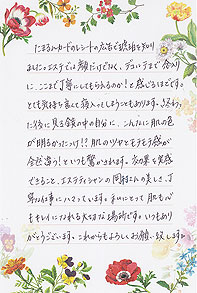 にまるカードのレシートの広告で琥珀を知り
ました。エステでは顔だけでなく、デコルテまで念入り
に、ここまで丁寧にしてもらえるのか!と感じるほどです。
とても気持ち良くて寝入ってしまうこともあります。終わっ
た後に見る鏡の中の自分に、こんなに肌の色
が明るかったけ!?肌のツヤとモチモチ感が
全然違う!といつも驚かされます。効果を実感
できること、エステティシャンの
お仕事にハマっています。私にとって肌も心
もキレイになれる大切な場所です。いつもあり
がとうございます。これからもよろしくお願い致します。